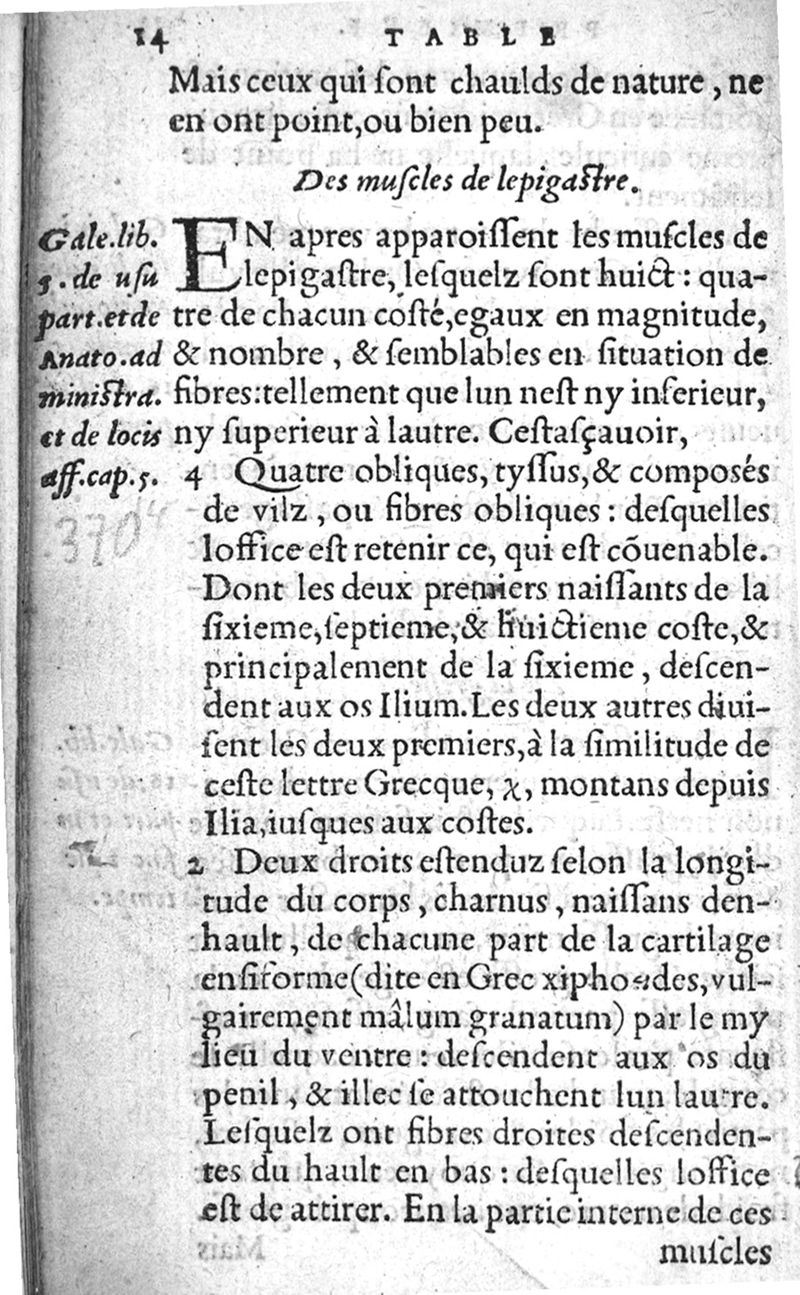 14 TABLE
Mais ceux qui ſont chaulds de nature, ne
en ont point, ou bien peu.
Des muſcles de lepigaſtre.
Gale.lib.
5. de uſu
part. et de
Anato.ad
miniſtra.
et de locis
aff.cap.5.
EN apres apparoiſſent les muſcles de
lepigaſtre, leſquelz ſont huict : qua-
tre de chacun coſté, egaux en magnitude,
& nombre, & ſemblables en ſituation de
fibres: tellement que lun neſt ny inferieur,
ny ſuperieur à lautre. Ceſtaſçauoir,
4 Quatre obliques, tyſſus, & composés
de vilz, ou fibres obliques : deſquelles
loffice eſt retenir ce, qui eſt cõuenable.
Dont les deux premiers naiſſants de la
ſixieme, ſeptieme, & huictieme coſte, &
principalement de la ſixieme, deſcen-
dent aux os Ilium. Les deux autres diui-
ſent les deux premiers, à la ſimilitude de
ceſte lettre Grecque, χ, montans depuis
Ilia, iuſques aux coſtes.
2 Deux droits eſtenduz ſelon la longi-
tude du corps, charnus, naiſſans den-
hault, de chacune part de la cartilage
enſiforme (dite en Grec vul-
gairement mâlum granatum) par le my
lieu du ventre : deſcendent aux os du
penil, & illec ſe attouchent lun lautre.
Leſquelz ont fibres droites deſcenden-
tes du hault en bas : deſquelles loffice
eſt de attirer. En la partie interne de ces
muſcles